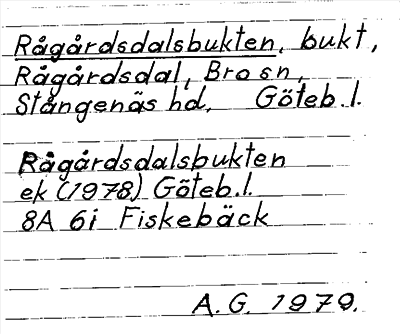 Rågårdsdalsbukten, bukt,
Rågårdsdal, Bro sn,
Stångenäs hd, Göteb.l.
Rågårdsdalsbukten
ek (1978) Göteb.l.
8A 6i Fiskebäck
A.G. 1979.